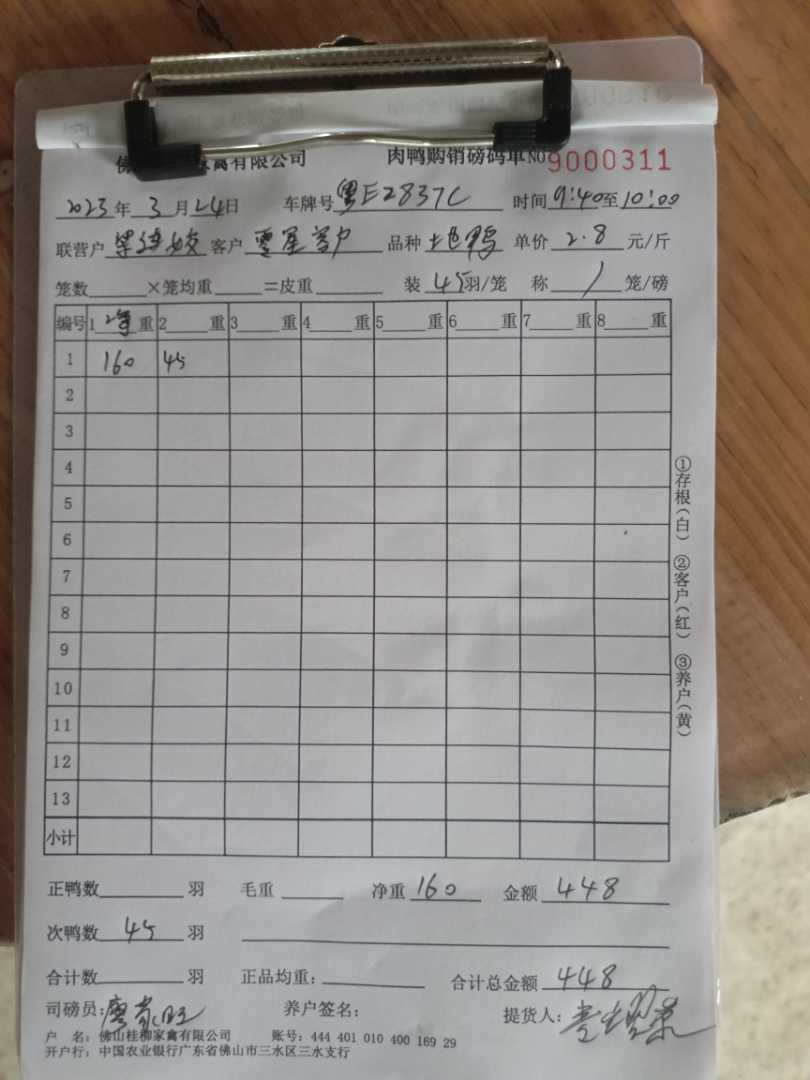 佛 禽有限公司 肉鸭购销磅码单 NO 9000311
2023年 3月24日 车牌号 粤E2837C 时间 9:40至10:00
联营户 客户 零星客户 品种 土色鸭 单价 2.8 元/斤
笼数 ×笼均重 =皮重 装 45羽/笼 称 / 笼/磅
编号 1 净重 2 重 3 重 4 重 5 重 6 重 7 重 8 重
1 160 45
2
3
4
5
6
7
8
9
10
11
12
13
小计
①存根(白) ②客户(红) ③养户(黄)
正鸭数 羽 毛重 净重 160 金额 448
次鸭数 45 羽
合计数 羽 正品均重: 合计总金额 448
司磅员: 养户签名: 提货人:
户 名: 佛山桂柳家禽有限公司 账号: 444 401 010 400 169 29
开户行: 中国农业银行广东省佛山市三水区三水支行